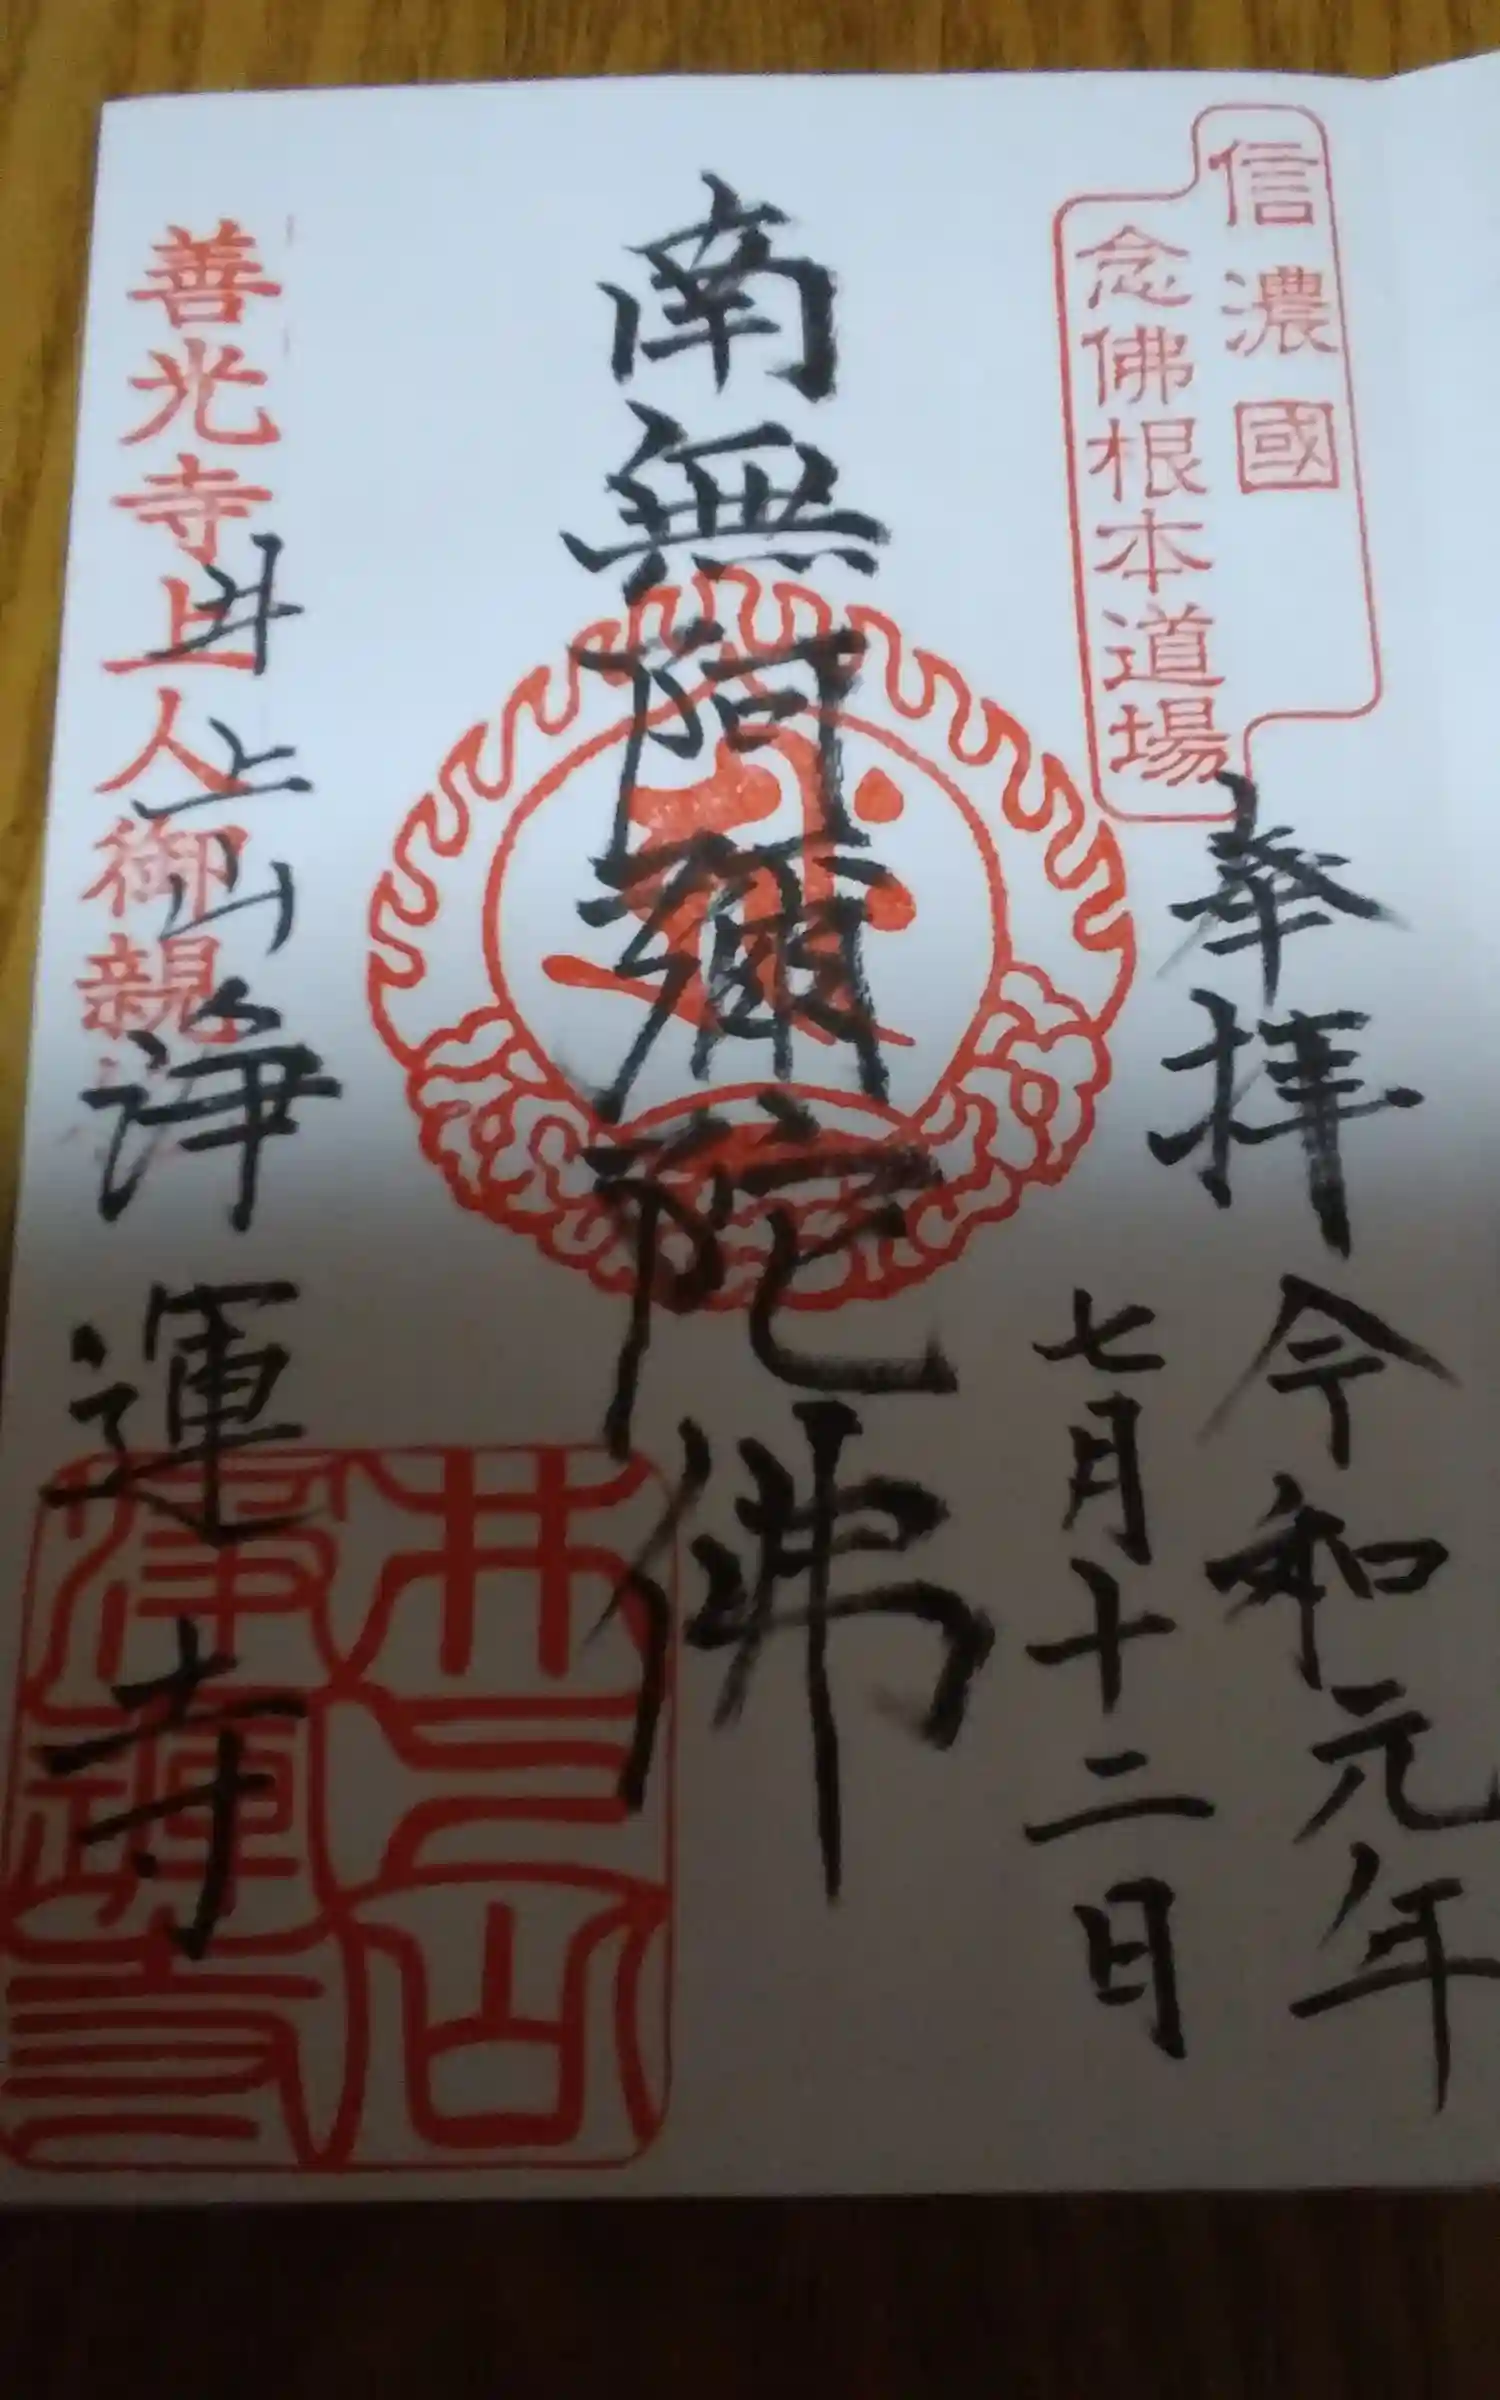 信濃國
念佛根本道場
奉拝 令和元年
七月十二日
南無阿彌陀佛
善光寺上人御親
井上山 浄運寺
井上山
浄運寺